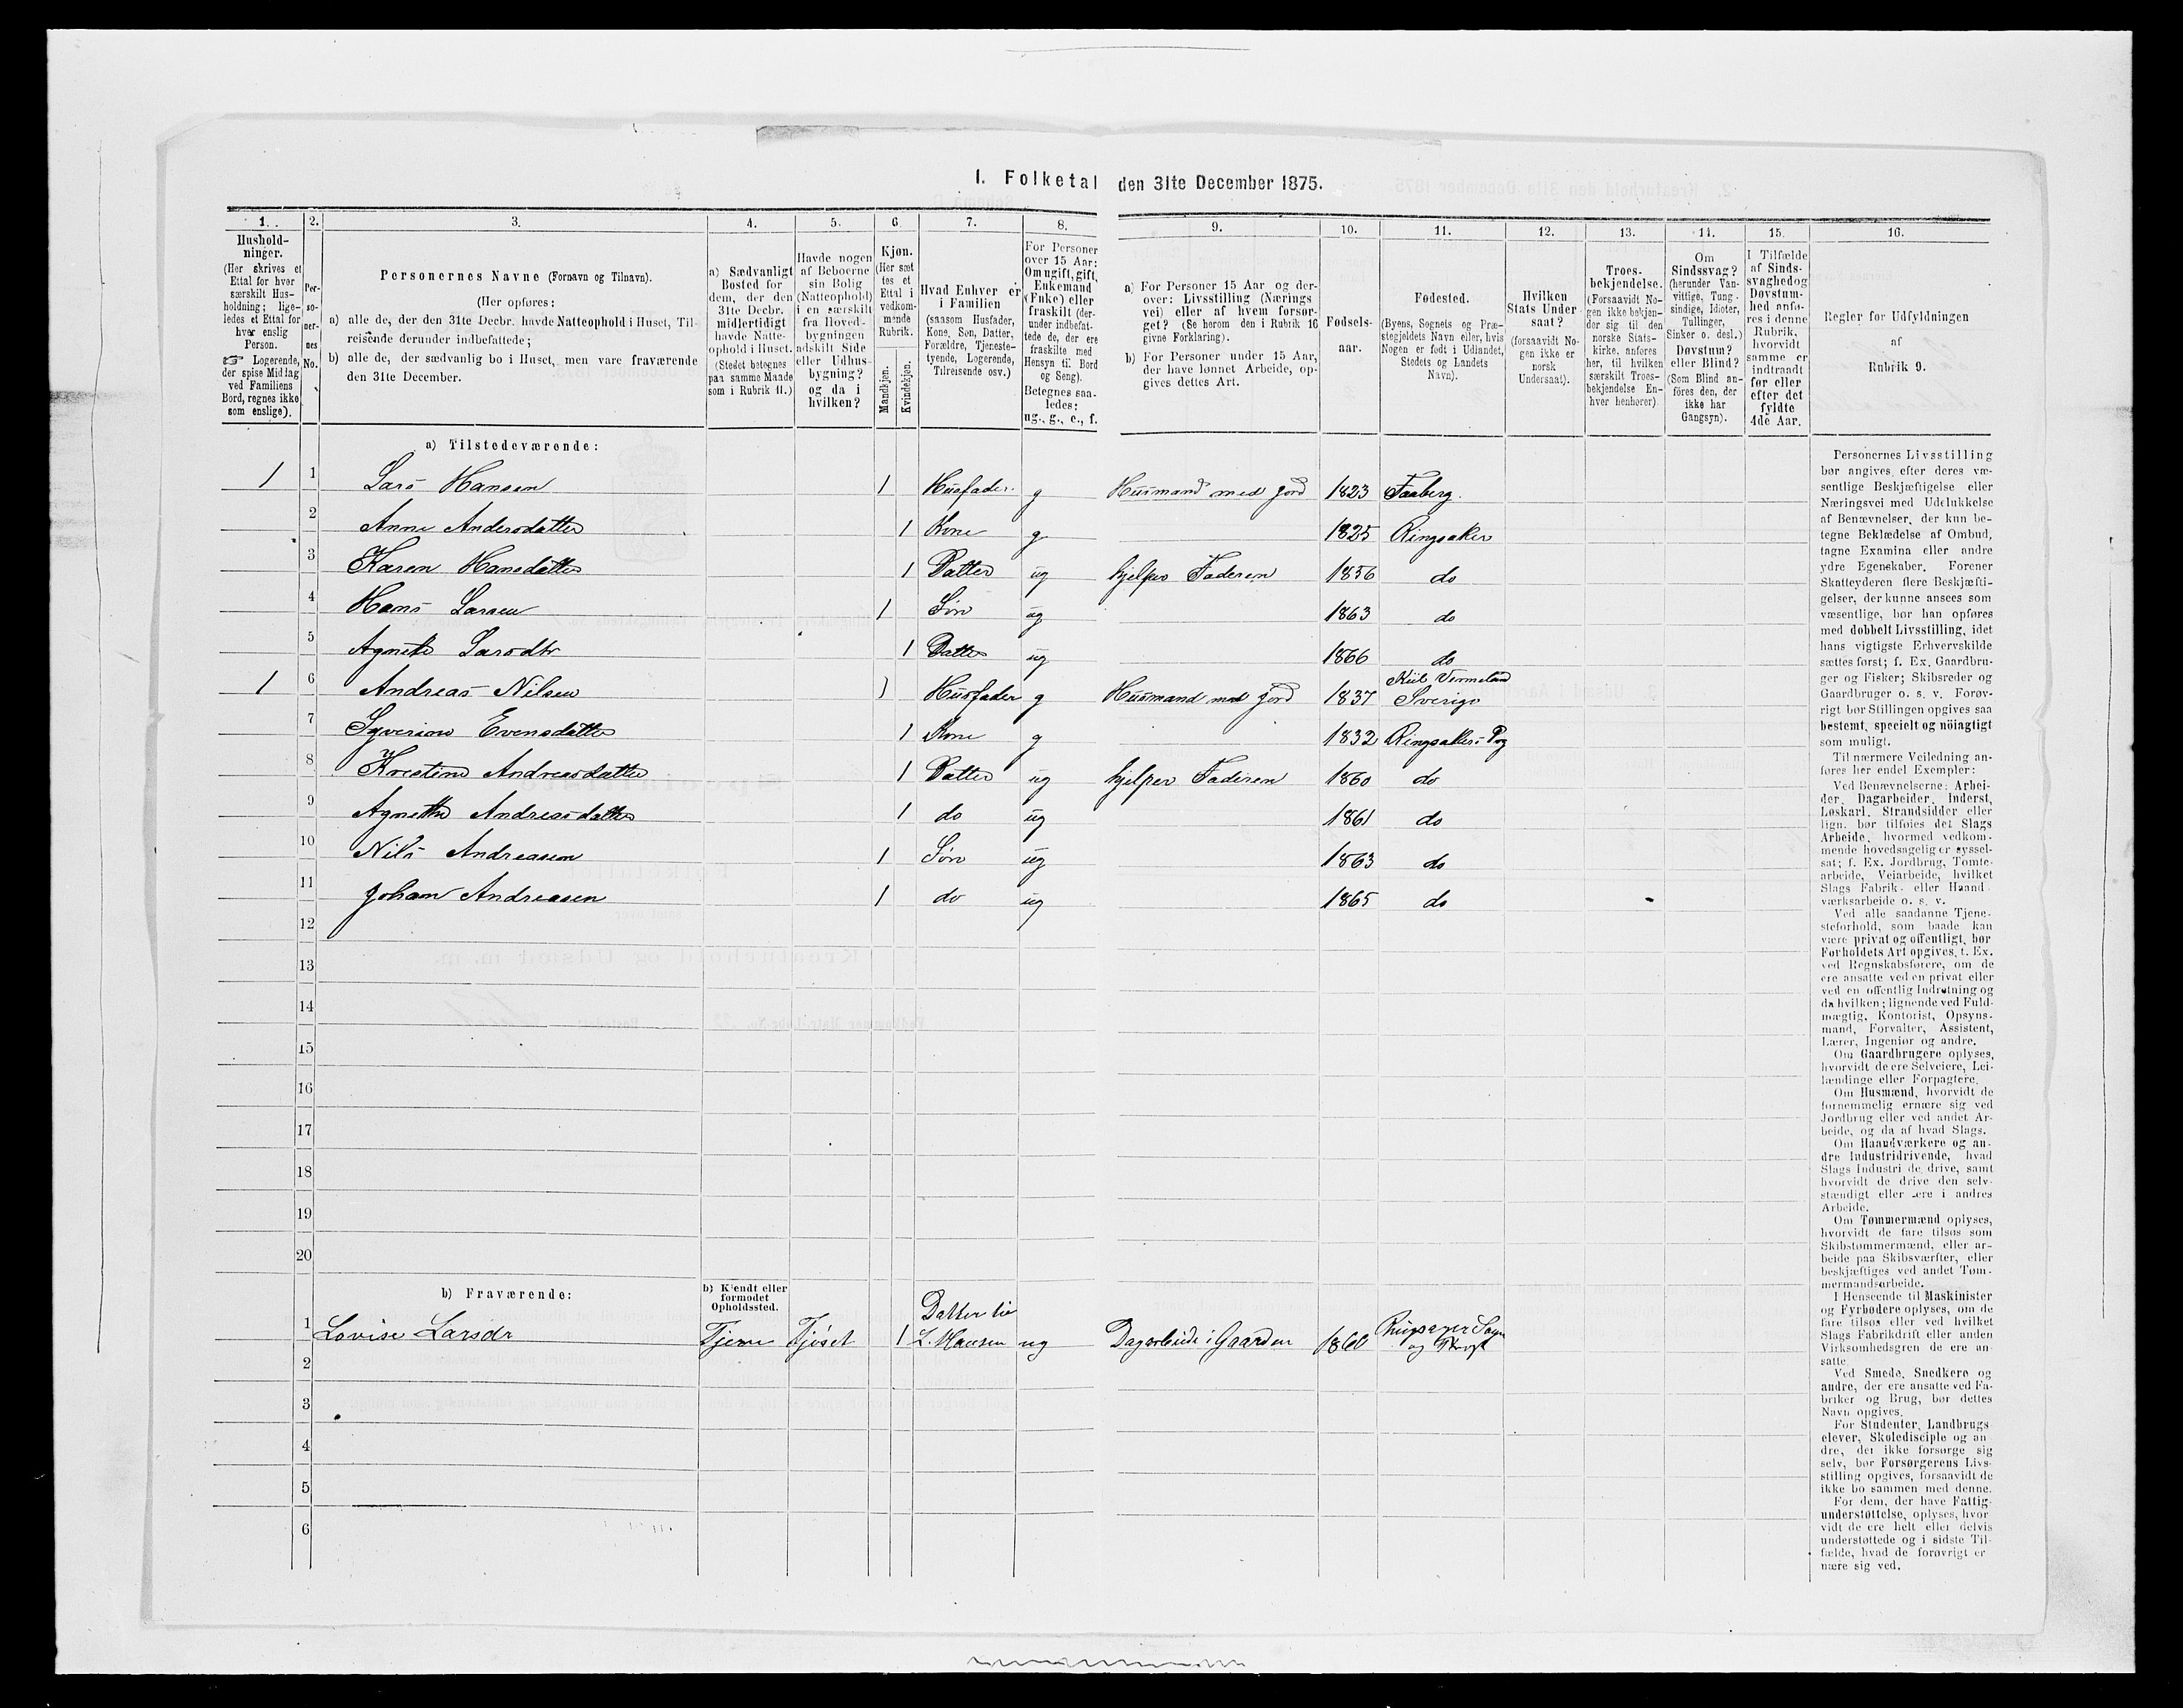 1. Folketal den 31te December 1875.
1. 2. 3. 4. 5. 6. 7. 8. 9. 10. 11. 12. 13. 14. 15. 16.
Hushold-
ninger.
(Her skrives et
Ettal for hver
særskilt Hus-
holdning; lige-
ledes et Ettal for
hver enslig
Person.
☞ Logerende,
der spise Middag
ved Familiens
Bord, regnes ikke
som enslige).
Per-
so-
ner-
nes
No.
Personernes Navne (Fornavn og Tilnavn).
(Her opføres:
a) alle de, der den 31te Decbr. havde Natteophold i Huset, Til-
reisende derunder indbefattede;
b) alle de, der sædvanlig bo i Huset, men vare fraværende
den 31te December.
a) Sædvanligt
Bosted for
dem, der den
31te Decbr.
midlertidigt
havde Natte-
ophold i Huset.
(Stedet betegnes
paa samme Maade
som i Rubrik 11.)
Havde nogen
af Beboerne
sin Bolig
(Natteophold)
i en særskilt
fra Hoved-
bygningen
adskilt Side
eller Udhus-
bygning?
og da i
hvilken?
Kjøn.
(Her sæt
tes et
Ettal i
vedkom-
mende
Rubrik.
Mandkjøn.
Kvindekjøn.
Hvad Enhver er
i Familien
(saasom Husfader,
Kone, Søn, Datter,
Forældre, Tjeneste-
tyende, Logerende,
Tilreisende osv.)
For Personer
over 15 Aar:
Om ugift, gift,
Enkemand
(Enke) eller
fraskilt (der-
under indbefat-
tede de, der ere
fraskilte med
Hensyn til Bord
og Seng).
Betegnes saa-
ledes:
ug., g., e., f.
a) For Personer 15 Aar og der-
over: Livsstilling (Nærings
vei) eller af hvem forsør-
get? (Se herom den i Rubrik 16
givne Forklaring).
b) For Personer under 15 Aar,
der have lønnet Arbeide, op-
gives dettes Art.
Fødsels-
aar.
Fødested.
(Byens, Sognets og Præ-
stegjeldets Navn eller, hvis
Nogen er født i Udlandet,
Stedets og Landets
Navn).
Hvilken
Stats Under
saat?
(forsaavidt No-
gen ikke er
norsk
Undersaat).
Troes-
bekjendelse.
(Forsaavidt No-
gen ikke bekjen-
der sig til den
norske Stats-
kirke, anføres
her, til hvilken
særskilt Troes-
bekjendelse En-
hver henhører)
Om
Sindssvag?
(herunder Van-
vittige, Tung-
sindige, Idioter,
Tullinger,
Sinker o. desl.)
Døvstum?
eller Blind?
(Som Blind an-
føres den, der
ikke har
Gangsyn).
I Tilfælde
af Sinds-
svaghed og
Døvstum-
hed anfø-
res i denne
Rubrik,
hvorvidt
samme er
indtraadt
før eller
efter det
fyldte
4de Aar.
Regler for Udfyldningen
af
Rubrik 9.
a) Tilstedeværende:
1 1 Lars Hansen 1 Husfader g Husmand med Jord 1823 Faaberg.
2 Anne Andersdatter 1 Kone g 1825 Ringsaker
3 Karen Hansdatter 1 Datter ug hjelper Faderen 1856 do
4 Hans Larsen 1 Søn ug 1863 do
5 Agnete Larsdtr 1 Datter ug 1866 do
1 6 Andreas Nilsen 1 Husfader g Husmand med Jord 1837 Vermeland Sverige
7 Evensdatter 1 Kone g 1832 Ringsakers Pg
8 Kristine Andreasdatter 1 Datter ug hjelper Faderen 1860 do
9 Agnethe Andreasdatter 1 do ug 1861 do
10 Nils Andreasen 1 Søn ug 1863 do
11 Johan Andreasen 1 do ug 1865 do
12
13
14
15
16
17
18
19
20
b) Fraværende:
b) Kjendt eller
formodet
Opholdssted.
1 Lovise Larsdr Tjene Tjøset 1 Datter til L. Hansen ug Dagarbeide i Gaarden 1860 Sogn og
2
3
4
5
6
Personernes Livsstilling
bør angives efter deres væ-
sentlige Beskjæftigelse eller
Næringsvei med Udelukkelse
af Benævnelser, der kun be-
tegne Beklædelse af Ombud,
tagne Examina eller andre
ydre Egenskaber. Forener
Skatteyderen flere Beskjæfti-
gelser, der kunne ansees som
væsentlige, bør han opføres
med dobbelt Livsstilling, idet
hans vigtigste Erhvervskilde
sættes først; f. Ex. Gaardbru-
ger og Fisker; Skibsreder og
Gaardbruger o. s. v. Forøv-
rigt bør Stillingen opgives saa
bestemt, specielt og nöiagtigt
som muligt.
Til nærmere Veiledning an-
føres her endel Exempler:
Ved Benævnelserne: Arbei-
der, Dagarbeider, Inderst,
Løskarl, Strandsidder eller
lign. bør tilføies det Slags
Arbeide, hvormed vedkom-
mende hovedsagelig er syssel-
sat; f. Ex. Jordbrug, Tomte-
arbeide, Veiarbeide, hvilket
Slags Fabrik- eller Haand-
værksarbeide o. s. v.
Ved alle saadanne Tjene-
steforhold, som baade kan
være privat og offentligt, bør
Forholdets Art opgives, t. Ex.
ved Regnskabsførere, om de
ere ansatte ved en privat eller
ved en offentlig Indretning og
da hvilken; lignende ved Fuld-
mægtig, Kontorist, Opsyns-
mand, Forvalter, Assistent,
Lærer, Ingeniør og andre.
Om Gaardbrugere oplyses,
hvorvidt de ere Selveiere, Lei-
lændinge eller Forpagtere.
Om Husmænd, hvorvidt de
fornemmelig ernære sig ved
Jordbrug eller ved andet Ar-
beide, og da af hvad Slags.
Om Haandværkere og an-
dre Industridrivende, hvad
Slags Industri de drive, samt
hvorvidt de drive den selv-
stændigt eller ere i andres
Arbeide.
Om Tømmermænd oplyses,
hvorvidt de fare tilsøs som
Skibstømmermænd, eller ar-
beide paa Skibsværfter, eller
beskjæftiges ved andet Tøm-
mermandsarbeide.
I Henseende til Maskinister
og Fyrbødere oplyses, om de
fare tilsøs eller ved hvilket
Slags Fabrikdrift eller anden
Virksomhedsgren de ere an-
satte.
Ved Smede, Snedkere og
andre, der ere ansatte ved Fa-
briker og Brug, bør dettes
Navn opgives.
For Studenter, Landbrugs-
elever, Skoledisciple og an-
dre, der ikke forsørge sig
selv, bør Forsørgerens Livs-
stilling opgives, forsaavidt de
ikke bo sammen med denne.
For dem, der have Fattig-
understøttelse, oplyses, hvor-
vidt de ere helt eller delvis
understøttede og i sidste Til-
fælde, hvad de forøvrigt er
nære sig ved.